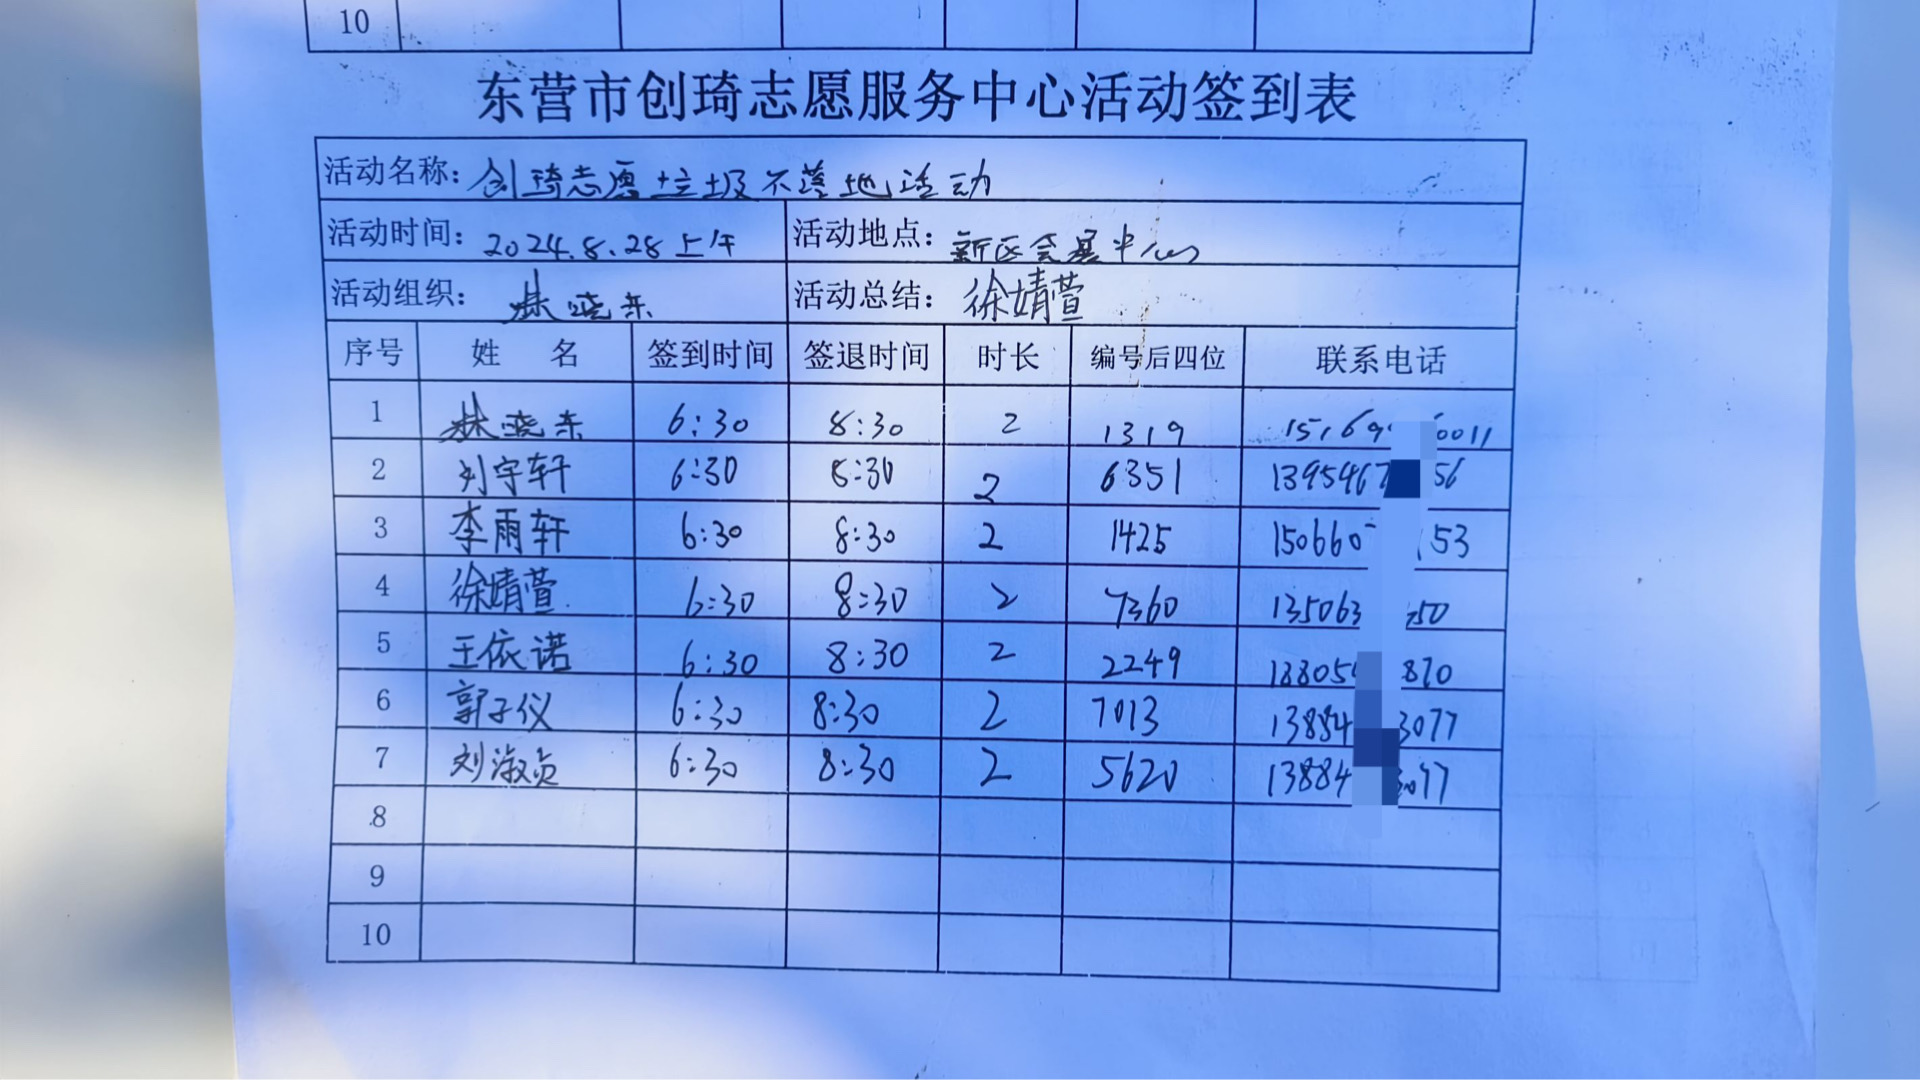 10
东营市创琦志愿服务中心活动签到表
活动名称：创琦志愿垃圾不落地活动
活动时间：2024.8.28上午 活动地点：新区会展中心
活动组织：林晓东 活动总结：徐婧萱
序号 姓 名 签到时间 签退时间 时长 编号后四位 联系电话
1 林晓东 6:30 8:30 2 1319 0011
2 刘宇轩 6:30 8:30 2 6351 1395467 56
3 李雨轩 6:30 8:30 2 1425 150660 53
4 徐婧萱 6:30 8:30 2 7360 135063 50
5 王依诺 6:30 8:30 2 2249 13805 870
6 郭子仪 6:30 8:30 2 7013 13884 3077
7 刘淑贞 6:30 8:30 2 5620 13884 3077
8
9
10